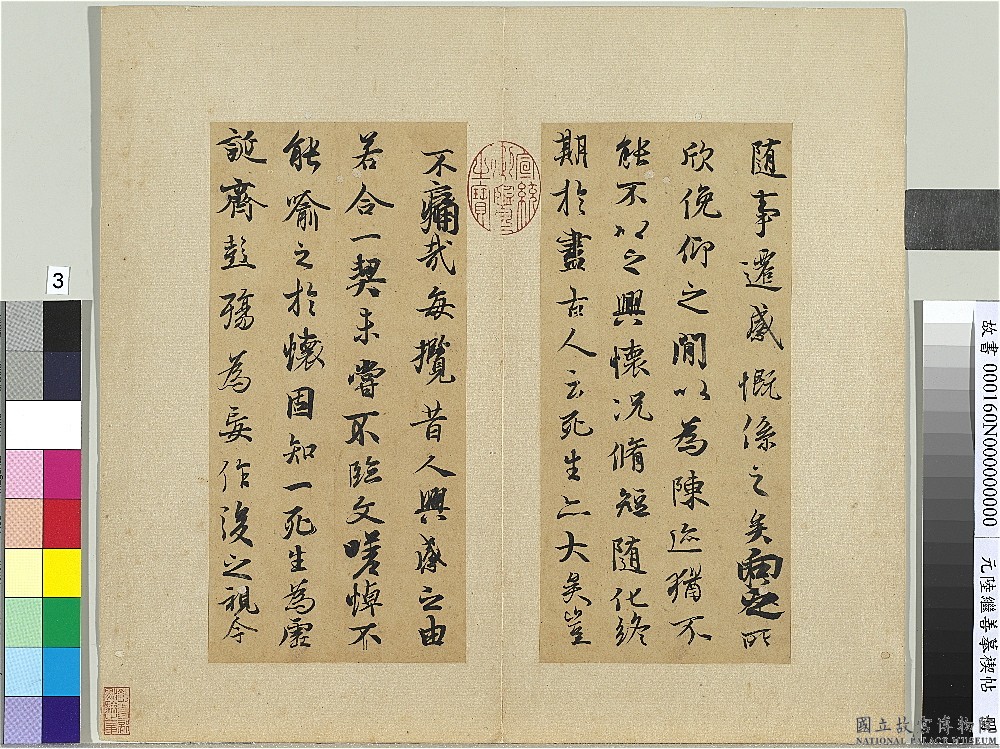 隨事遷感慨係之矣向之所
欣俛仰之閒以為陳迹猶不
能不以之興懷況脩短隨化終
期於盡古人云死生亦大矣豈
不痛哉每攬昔人興感之由
若合一契未嘗不臨文嗟悼不
能喻之於懷固知一死生為虛
誕齊彭殤為妄作後之視今
宣統御覽之寶
3
故書 000160N000000000
元陸繼善摹禊帖
國立故宮博物院
NATIONAL PALACE MUSEUM